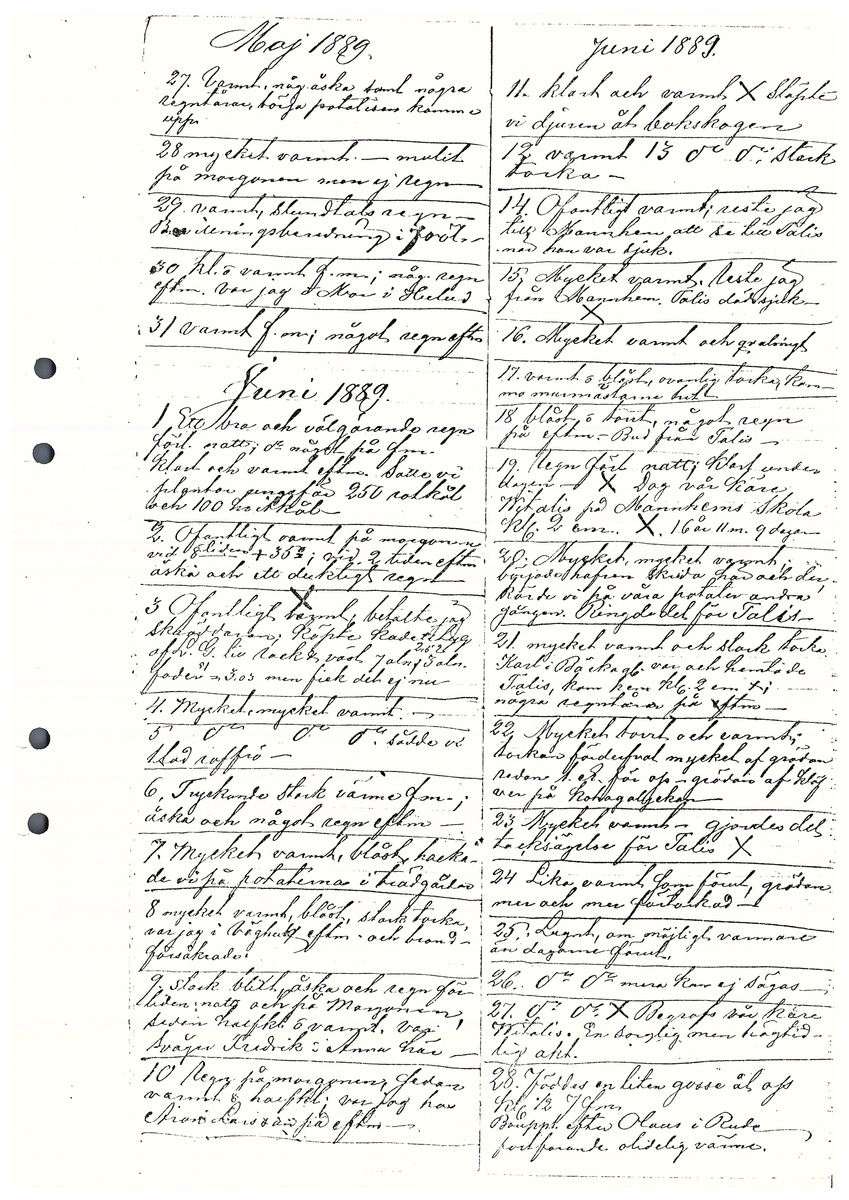 Maj 1889.
27. Varmt, någ. åska samt några
regntårar, börja potatisen komma
upp.
28 mycket varmt. — mulit
på morgonen men ej regn —
29. varmt, stundtals regn —
i Förl. —
30 kl. o varmt f.m.; någ. regn
eftm. var jag o Mor i
31 varmt f.m.; något regn eftm
Juni 1889.
1 Ett bra och välgörande regn
förl. natt; do något på fm.
Klart och varmt eftm. Satte vi
plantor ungefär 250 rotkål
och 100 hvitkål
2. Ofantligt varmt på morgonen
vid 8 tiden + 35°; vid 2 tiden eftm
åska och ett duktigt regn
X
3 Ofantligt varmt, betalte jag
Skräddaren, köpte
af G. liv rock & väst 7 aln, 3 aln.
foder = 3.03 men fick det ej nu
4. Mycket, mycket varmt. —
5 do do do sådde vi
1 kad roffrö —
6, Tryckande stark värme f.m.;
åska och något regn eftm —
7. Mycket varmt, blåst, hacka-
de vi på potaterna i trädgården
8 mycket varmt, blåst, stark torka,
var jag i eftm. och brand-
försäkrade.
9. stark blixt, åska och regn för-
liden natt och på Morgonen,
sedan halfkl. o varmt. var
Svåger Fredrik o Anna här —
10 Regn på morgonen, sedan
varmt o halfkl; var jag hos
Aron Larsson på eftm —
Juni 1889.
11. klart och varmt X Släpte
vi djuren åt bokskogen
12, varmt 13 do do; stark
torka —
14, Ofantligt varmt; reste jag
till Mannhem att se till Talis
når han var sjuk.
15, Mycket varmt. Reste jag
från Mannhem. Talis dödssjuk
X
16. Mycket varmt och qvalmigt
17. varmt o blåst, ovanlig torka, kom-
mo murmästarne hit
18 blåst o torrt, något regn
på eftm — Bud från Talis —
19. Regn förl natt; Klart under
dagen — X Dog vår käre
Witalis på Mannhems Skola
kl. 2 em. X. 16 år 11 m. 9 dagar
20; Mycket, mycket varmt,
började hafren skrida här och der,
körde vi på våra potater andra
gången. Ringde det för Talis —
21. mycket varmt och stark torka
Karl i Bäckag. var och hemtade
Talis, kom hem kl. 2 em +;
några regntårar på eftm —
22, Mycket torrt och varmt;
torkan förderfvat mycket af grödan
redan t. ex. för oss — grödan af klöf-
ver på
23 Mycket varmt — gjordes det
tacksägelse för Talis X
24 Lika varmt som förut, grödan
mer och mer förtorkad —
25. Lugnt, om möjligt varmare
än dagarne förut.
26. do do mera kan ej sägas —
27. do do X Begrofs vår käre
Witalis. En sorglig men högtid-
lig akt.
28. Föddes en liten gosse åt oss
kl. 1/2 7 fm
Bouppt. efter Olaus i Rude
fortfarande olidelig värme.